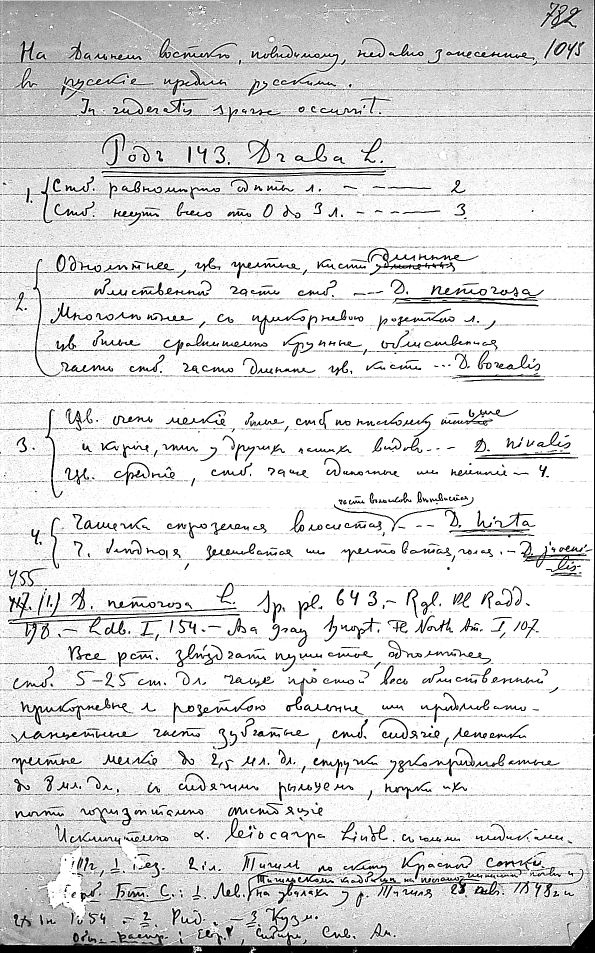 782
1045
На Дальнем востоке, повидимому, недавно занесенное,
в русскіе пределы русскими.
In ruderatis sparse occurrit.
Родъ 143. Draba L.
1. Стб. равномерно одеты л. - - --- 2
Стб. несут всего от 0 до 3 л. - - --- 3
2. Однолетнее, цв. желтые, кисти длиннее
облиственной части стб. --- D. nemorosa
Многолетнее, с прикорневою розеткою л.,
цв белые сравнительно крупные, облиственная
часть стб. часто длиннее цв. кисти --- D. borealis
3. Цв. очень мелкіе, белые, стб по-нискому
и короче, чем у других наших видов --- D. nivalis
Цв. средніе, стб. чаще одиночные или — 4.
части волосков вытягивается
4. Чашечка волосистая, --- D. hirta
Ч. бледная, зеленоватая ии желтоватая, голая. - D. juveni-
lis.
455
(1.) D. nemorosa L. Sp. pl. 643. - Rgl. Pl Radd.
198. - Ldb. I, 154. - Asa Gray Synopt. Fl North Am. I, 107.
Все рст. звездчато пушистое, однолетнее,
стб. 5-25 cm. дл. чаще простой весь облиственный,
прикорневые л розеткою овальные или продолговато-
ланцетные часто зубчатые, стб. сидячіе, лепестки
желтые мелкіе до 2,5 мл. дл., стручки узкопродолговатые
до 8 мл. дл. с сидячим рыльцем, ножки их
почти горизонтально отстоящіе
Исключительно α. leiocarpa Lindl. с голыми
1. 2 іл. Тигиль по склону Красной сопки
Герб. Бот. С.: 1. Лев. на увалах у р. Тигиля 1848 г.
54 - 2 Рид. - 3 Кузм.
Общ. распр.: Евр., Сибирь, Свв. Ам.